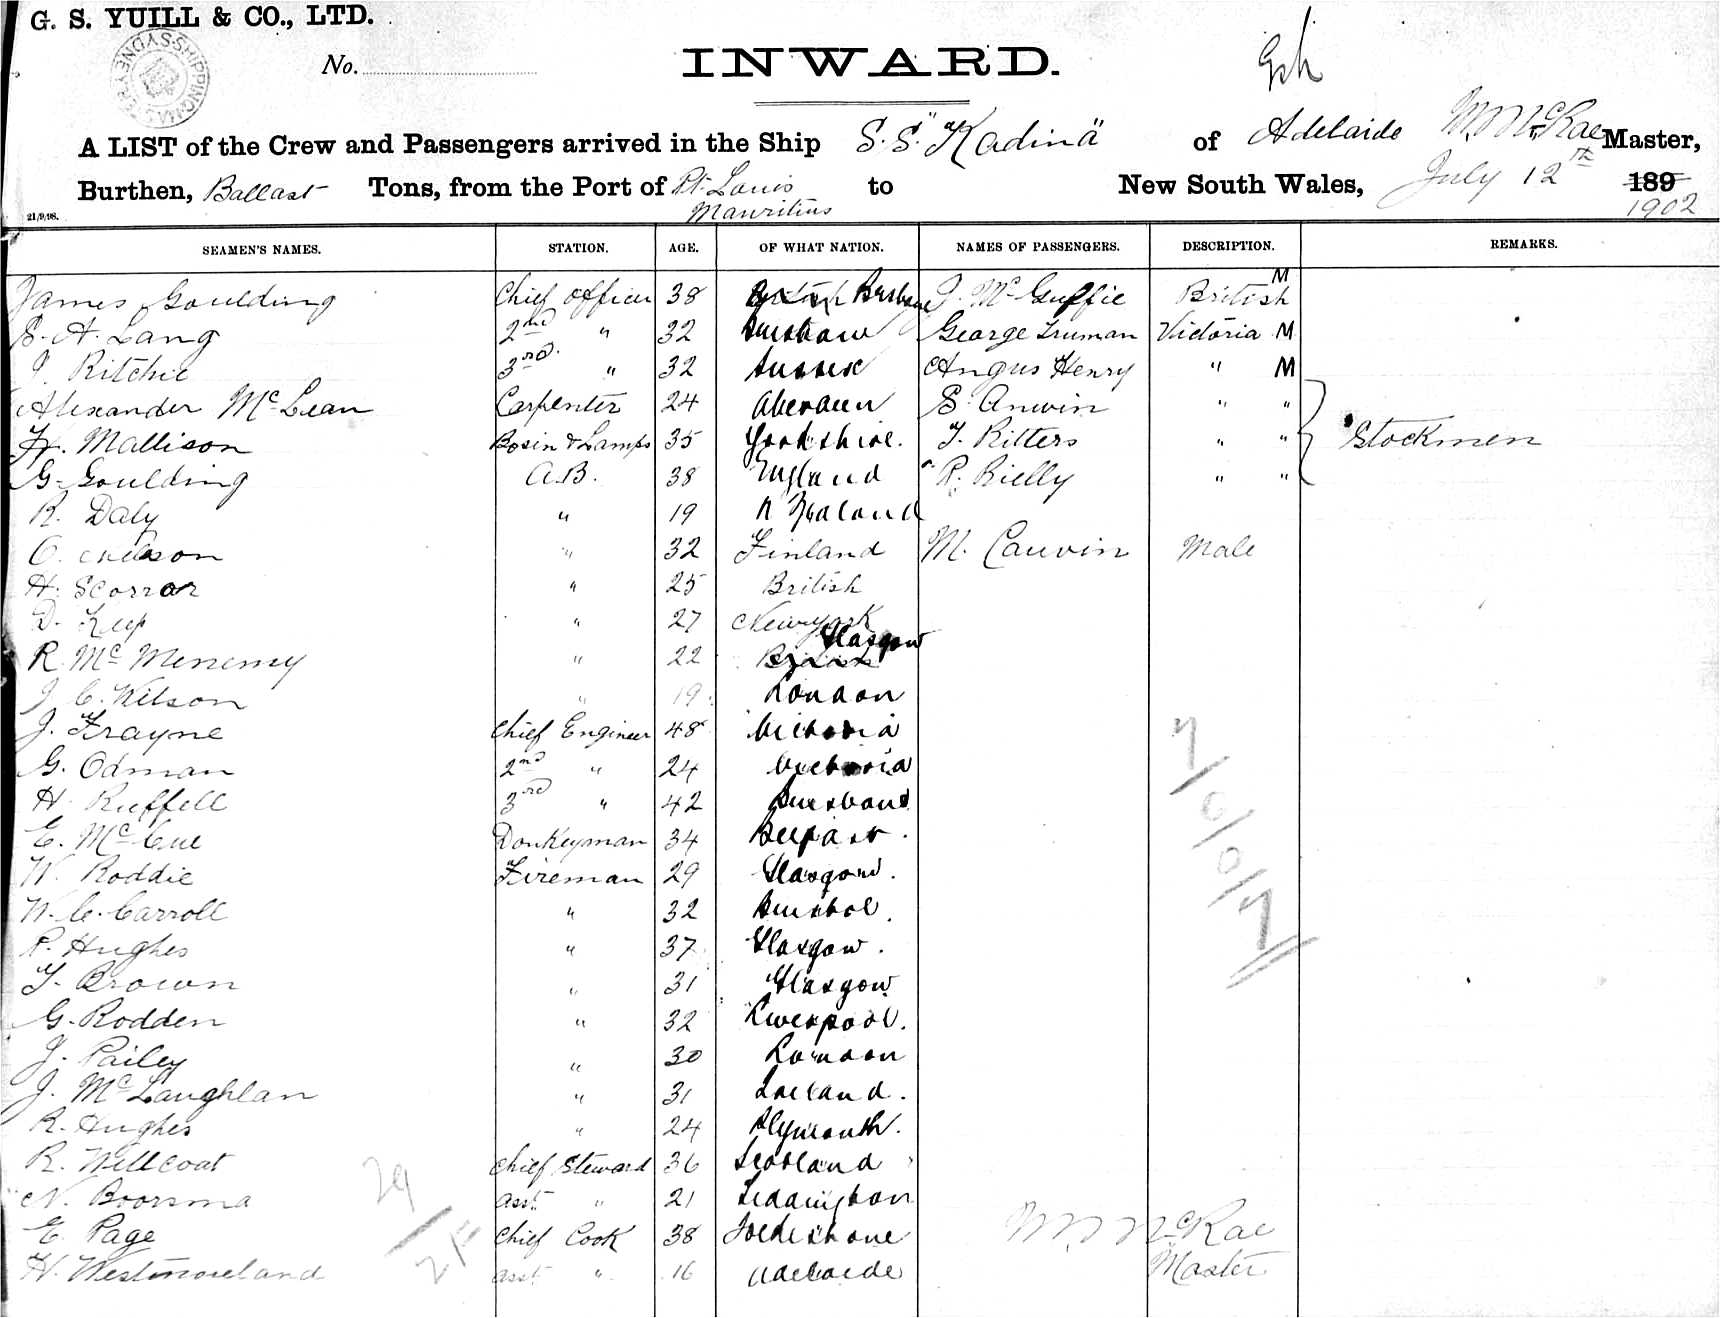 G. S. YUILL & CO., LTD.
SHIPPING MASTER SYDNEY
No.
INWARD.
A LIST of the Crew and Passengers arrived in the Ship S.S. "Kadina" of Adelaide M. McRae Master,
Burthen, Ballast Tons, from the Port of Pt. Louis Mauritius to New South Wales, July 12th 189 1902
21/9/98.
SEAMEN'S NAMES. STATION. AGE. OF WHAT NATION. NAMES OF PASSENGERS. DESCRIPTION. REMARKS.
James Goulding Chief Officer 38 Brisbane J. McGuffie British M
S. A. Lang 2nd " 32 George Truman Victoria M
J. Ritchie 3rd. " 32 Sussex Angus Henry " M
Alexander McLean Carpenter 24 Aberdeen S. Anwin " "
H. Mallison Bosin & Lamps 35 Yorkshire. T. Ritters " " Stockmen
G. Goulding A.B. 38 England R. Rielly " "
R. Daly " 19 N Zealand
C. Nelson " 32 Finland M. Cauvin Male
H. Scorrar " 25 British
D. Keep " 27 Newyork
R. McMenemy " 22 British Glasgow
J. C. Wilson " 19 London
J. Frayne Chief Engineer 48 Victoria
G. Odman 2nd " 24 Victoria
H. Ruffell 3rd " 42 Brisbane
E. McCue Donkeyman 34 Belfast.
W. Roddie Fireman 29 Glasgow.
W. C. Carroll " 32 Bristol.
P. Hughes " 37 Glasgow.
T. Brown " 31 Glasgow.
G. Rodden " 32 Liverpool.
J. Pailey " 30 London
J. McLaughlan " 31 Ireland.
R. Hughes " 24 Plymouth.
R. Willcoat Chief Steward 36 Scotland
N. Boorsma Asst " 21 Teddington
E. Page Chief Cook 38 Folkestone
H. Westmoreland Asst " 16 Adelaide
29
M. McRae
Master